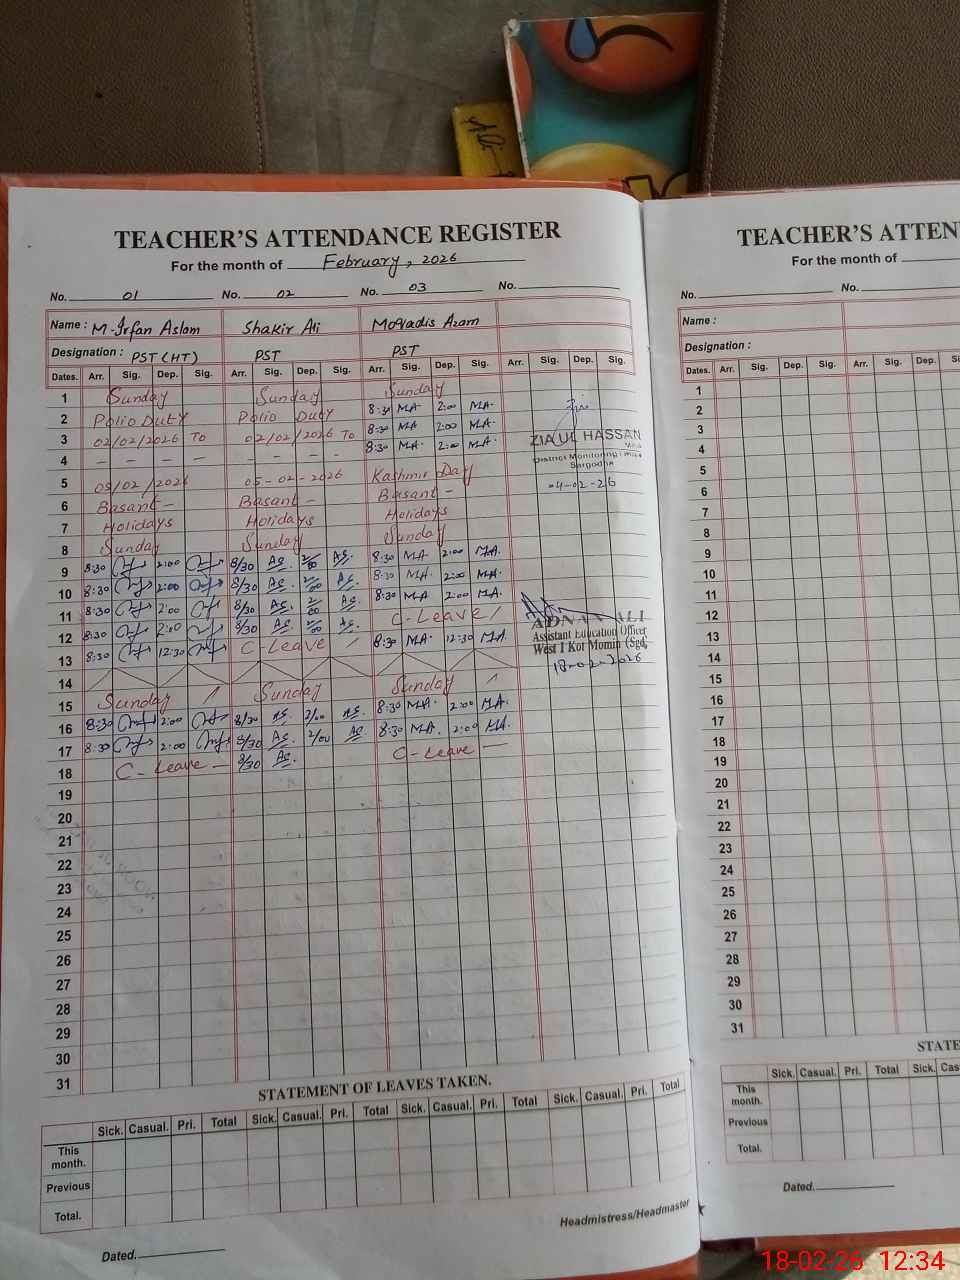 TEACHER'S ATTENDANCE REGISTER
For the month of February, 2026
No. 01 No. 02 No. 03 No.
Name : M. Irfan Aslam Shakir Ali Moqadis Azam
Designation : PST (HT) PST PST
Dates. Arr. Sig. Dep. Sig. Arr. Sig. Dep. Sig. Arr. Sig. Dep. Sig. Arr. Sig. Dep. Sig.
1 Sunday Sunday Sunday
2 Polio Duty Polio Duty 8:30 MA 2:00 MA
3 02/02/2026 To 02/02/2026 To 8:30 MA 2:00 MA
4 - - - - - - - - 8:30 MA 2:00 MA
5 05/02/2026 05-02-2026 Kashmir Day
6 Basant - Basant - Basant -
7 Holidays Holidays Holidays
8 Sunday Sunday Sunday
9 8:30 2:00 8/30 AS. 2/00 AS. 8:30 MA 2:00 MA.
10 8:30 2:00 8/30 AS. 2/00 AS. 8:30 MA. 2:00 MA.
11 8:30 2:00 8/30 AS. 2/00 AS. 8:30 MA 2:00 MA.
12 8:30 2:00 8/30 AS. 2/00 AS. C-Leave /
13 8:30 12:30 C-Leave / 8:30 MA. 12:30 MA.
14
15 Sunday / Sunday Sunday /
16 8:30 2:00 8/30 AS. 2/00 AS. 8:30 MA. 2:00 MA.
17 8:30 2:00 8/30 AS. 2/00 AS. 8:30 MA. 2:00 MA.
18 C-Leave - 8/30 AS. C-Leave -
19
20
21
22
23
24
25
26
27
28
29
30
31
ZIAUL HASSAN
District Monitoring
Sargodha
04-02-26
ADNAN ALI
Assistant Education Officer
West I Kot Momin (Sgd,
18-02-2026
STATEMENT OF LEAVES TAKEN.
Sick. Casual. Pri. Total Sick. Casual. Pri. Total Sick. Casual. Pri. Total Sick. Casual. Pri. Total
This month.
Previous
Total.
Headmistress/Headmaster
Dated.
TEACHER'S ATTEN
For the month of
No. No.
Name :
Designation :
Dates. Arr. Sig. Dep. Sig. Arr. Sig. Dep. Si
1
2
3
4
5
6
7
8
9
10
11
12
13
14
15
16
17
18
19
20
21
22
23
24
25
26
27
28
29
30
31
STATE
Sick. Casual. Pri. Total Sick. Cas
This month.
Previous
Total.
Dated.
18-02-26 12:34